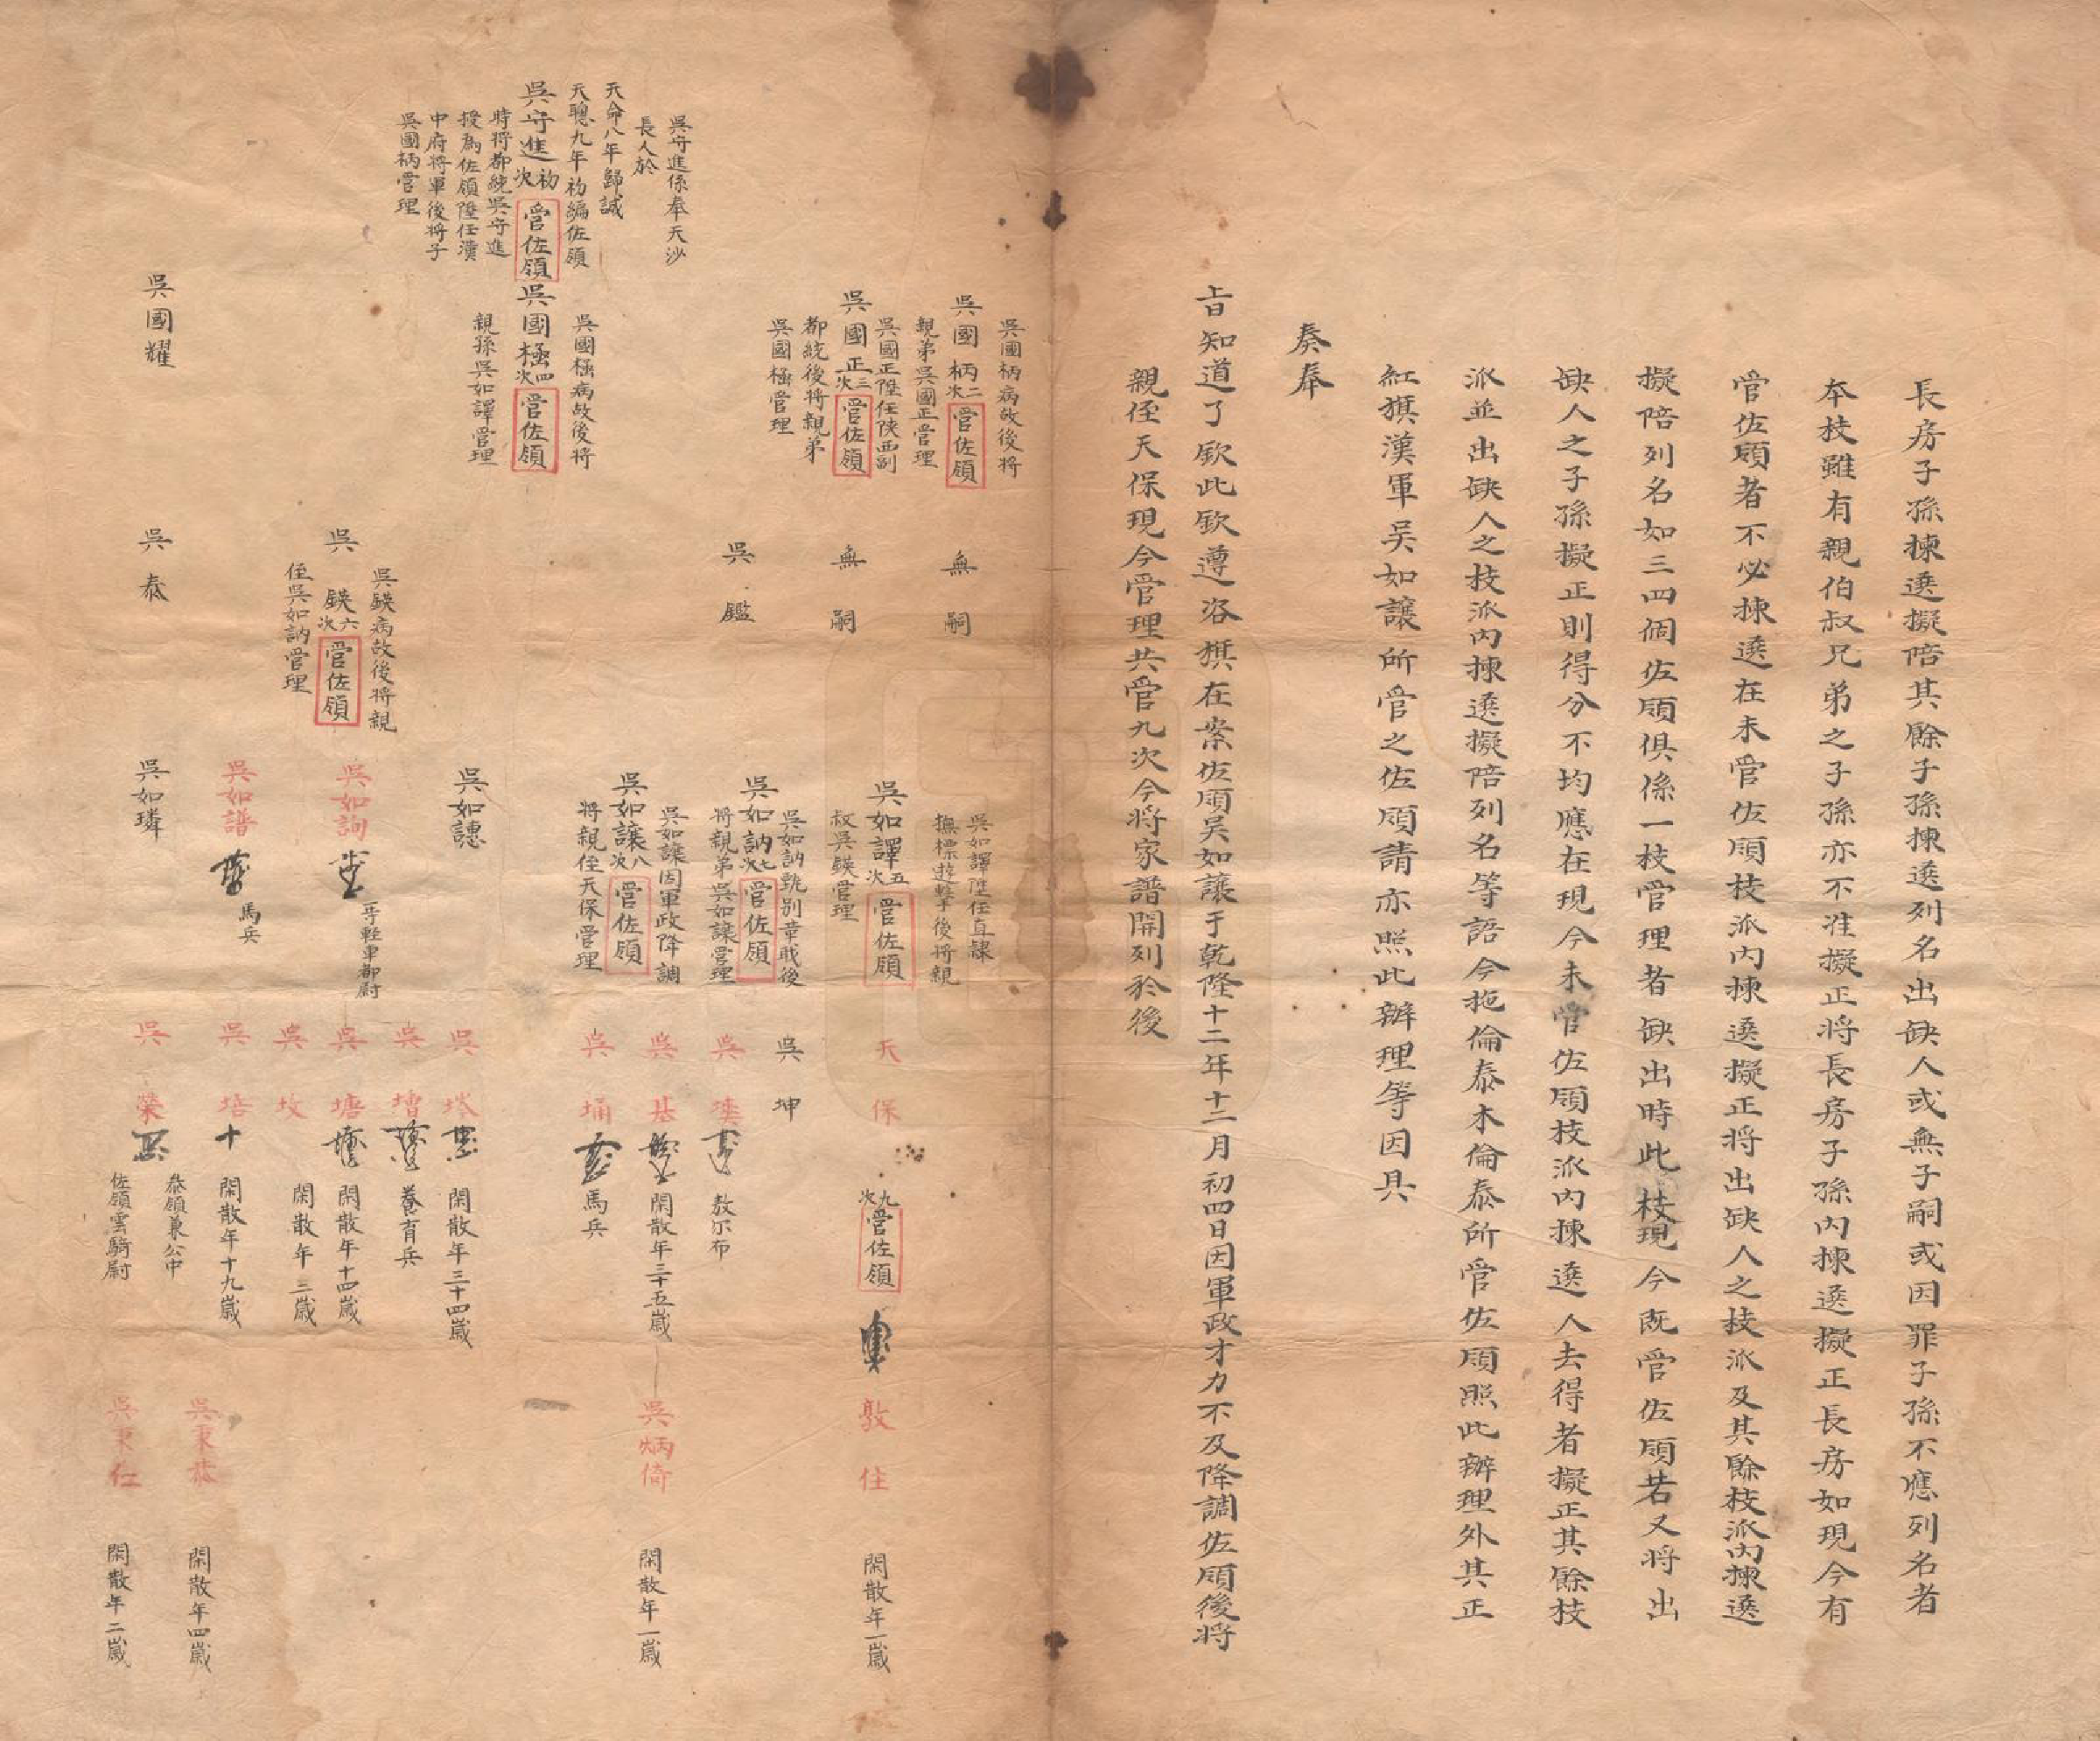 長房子孫揀選擬陪其餘子孫揀選列名出缺人或無子嗣或因罪子孫不應列名者
本枝雖有親伯叔兄弟之子孫亦不准擬正將長房子孫内揀選擬正長房如現今有
管佐領者不必揀選在未管佐領枝派内揀選擬正將出缺人之枝派及其餘枝派内揀選
擬陪列名如三四個佐領俱係一枝管理者缺出時此枝現今既管佐領若又將出
缺人之子孫擬正則得分不均應在現今未管佐領枝派内揀選人去得者擬正其餘枝
派並出缺人之枝派内揀選擬陪列名等語今拖倫泰木倫泰所管佐領照此辦理外其正
紅旗漢軍吳如讓所管之佐領請亦照此辦理等因具
奏奉
旨知道了欽此欽遵咨旗在案佐領吳如讓于乾隆十二年十二月初四日因軍政才力不及降調佐領後將
親侄天保現今管理共管九次今將家譜開列於後
吳守進係奉天沙
長人於
天命八年歸誠
天聰九年初編佐領
吳守進初次管佐領
時將都統吳守進
授為佐領陞任漢
中府將軍後將子
吳國柄管理
吳國柄病故後將
吳國柄二次管佐領
親弟吳國正管理
吳國正陞任陝西副
吳國正三次管佐領
都統後將親弟
吳國極管理
吳國極病故後將
吳國極四次管佐領
親孫吳如譯管理
吳國耀
無嗣
無嗣
吳鑑
吳鍈病故後將親
吳鍈六次管佐領
侄吳如訥管理
吳泰
吳如譯陞任直隸
撫標遊擊後將親
吳如譯五次管佐領
叔吳鍈管理
吳如訥觥別章戢後
吳如訥七次管佐領
將親弟吳如讓管理
吳如讓因軍政降調
吳如讓八次管佐領
將親侄天保管理
吳如譓
吳如詢
一等輕車都尉
吳如譜
馬兵
吳如璘
天保
九次管佐領
吳坤
吳
敖尔布
吳基
閑散年三十五歲
吳埇
馬兵
吳
閑散年三十四歲
吳增
養育兵
吳塘
閑散年十四歲
吳坟
閑散年三歲
吳培
十
閑散年十九歲
吳榮
叅領兼公中
佐領雲騎尉
敦住
閑散年一歲
吳炳倚
閑散年一歲
吳秉恭
閑散年四歲
吳秉仁
閑散年二歲